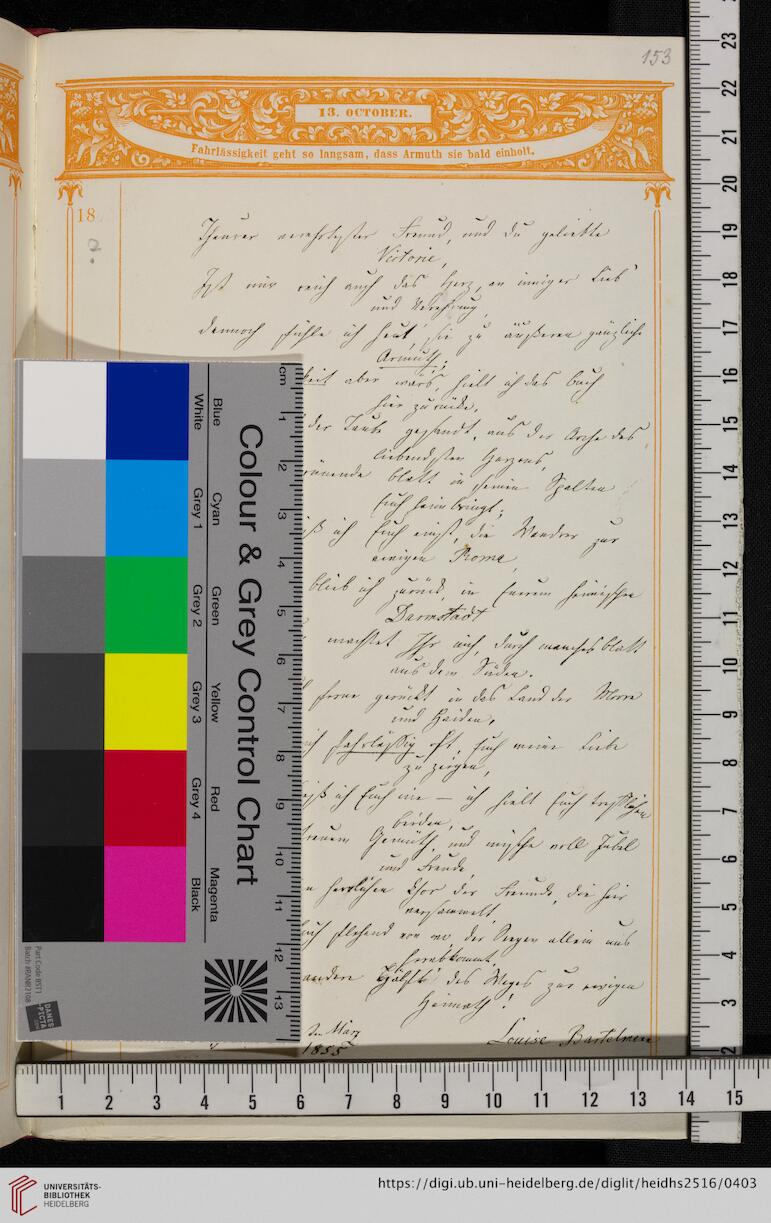 153
13. OCTOBER.
Fahrlässigkeit geht so langsam, dass Armuth sie bald einholt.
18
?
Theurer verehrtester Freund, und du geliebte
Victorie,
Ist mir reich auch das Herz, an inniger Lieb'
und Verehrung,
Dennoch fühle ich heut, sie zu äußeren gänzliche
Armuth;
keit aber wars, hielt ich das Buch
hier zurücke,
der Taube gesandt, aus der Arche des
liebendsten Herzens,
blatt in seinen Spalten
Euch heimbringt;
ich Euch einst, die Wandrer zur
ewigen Roma,
blieb ich zurück, in Eurem heimischen
Darmstadt
machtet Ihr mich, durch manches Blatt
aus dem Süden.
ferne gerückt in das Land der Moore
und Haiden,
ich fahrlässig oft, Euch meine Liebe
zu zeigen,
ich Euch nie — ich hielt Euch
beiden,
treuem Gemüth, und mische voll Jubel
und Freude,
herrlichen Chor der Freunde, die hier
versammelt,
flehend von wo der Segen allein uns
herabkommt,
andere Hälfte des Weges zur ewigen
Heimath!
März
1855
Louise Bartelmann
Colour & Grey Control Chart
Blue
Cyan
Green
Yellow
Red
Magenta
White
Grey 1
Grey 2
Grey 3
Grey 4
Black
cm 1 2 3 4 5 6 7 8 9 10 11 12 13
DANES
PICTA
23
22
21
20
19
18
17
16
15
14
13
12
11
10
9
8
7
6
5
4
3
2
1 2 3 4 5 6 7 8 9 10 11 12 13 14 15
UNIVERSITÄTS-
BIBLIOTHEK
HEIDELBERG
https://digi.ub.uni-heidelberg.de/diglit/heidhs2516/0403